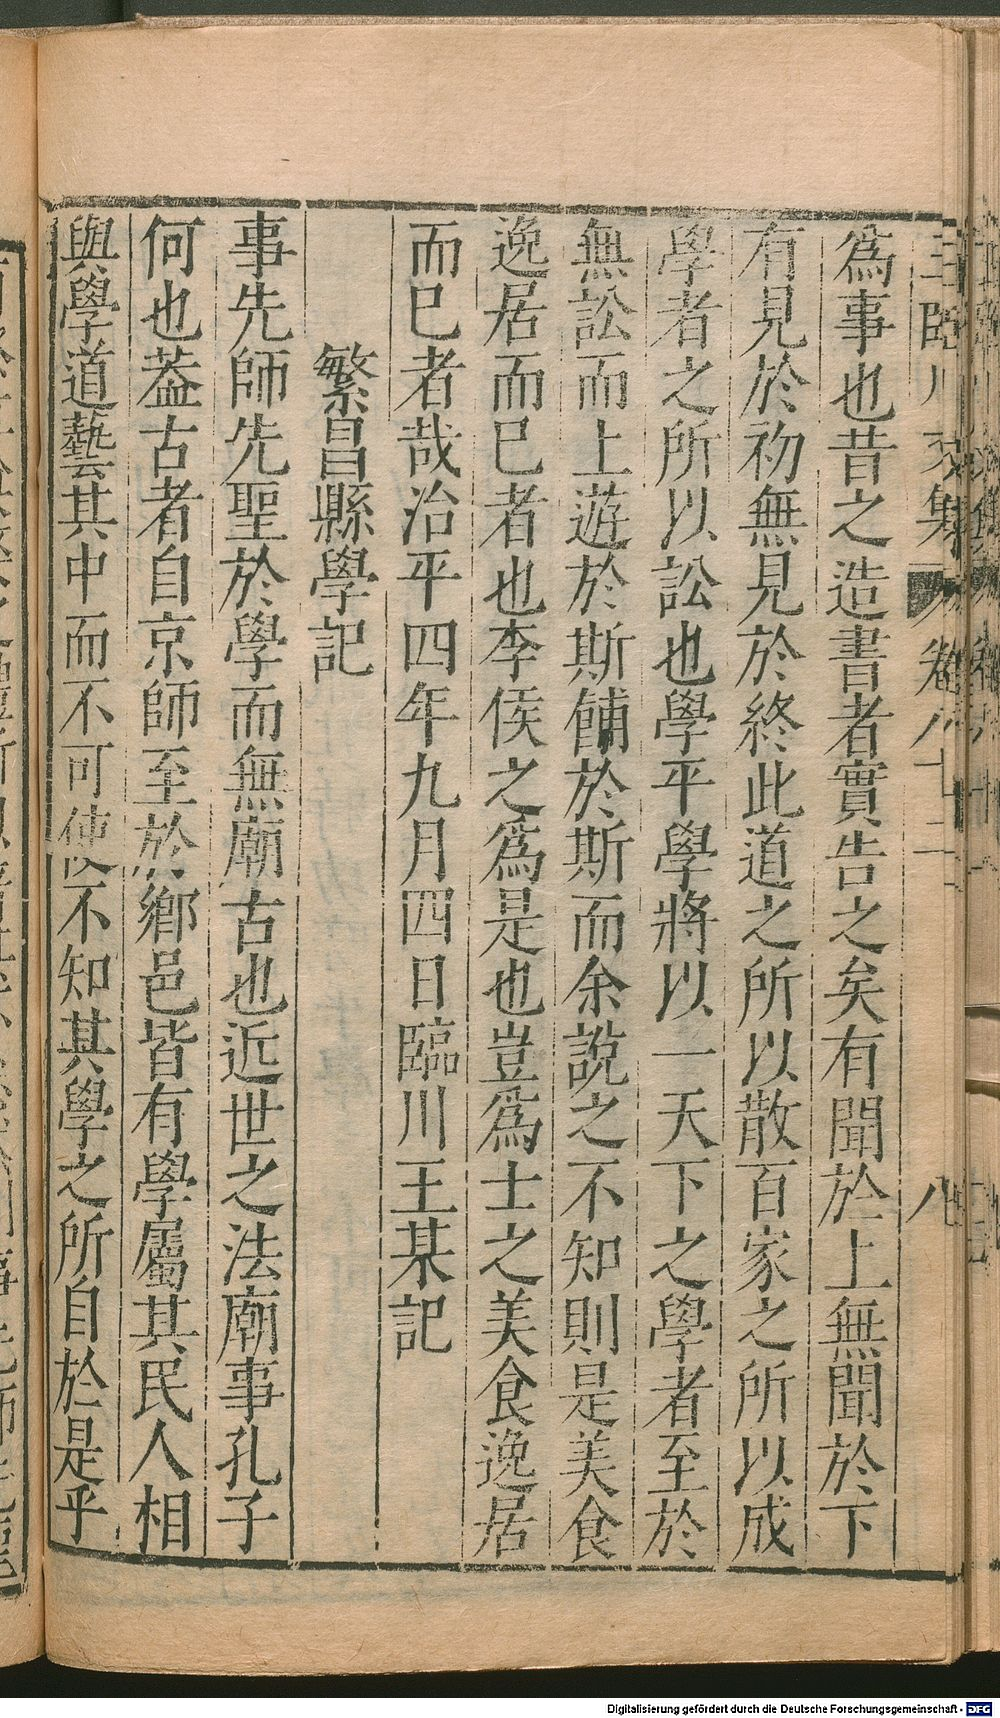 臨川文集 卷八十二 八
爲事也昔之造書者實告之矣有聞於上無聞於下
有見於初無見於終此道之所以散百家之所以成
學者之所以訟也學乎學將以一天下之學者至於
無訟而止遊於斯餔於斯而余說之不知則是美食
逸居而已者也李侯之爲是也豈爲士之美食逸居
而已者哉治平四年九月四日臨川王某記
繁昌縣學記
事先師先聖於學而無廟古也近世之法廟事孔子
何也葢古者自京師至於鄉邑皆有學屬其民人相
與學道藝其中而不可使不知其學之所自於是乎
Digitalisierung gefördert durch die Deutsche Forschungsgemeinschaft - DFG